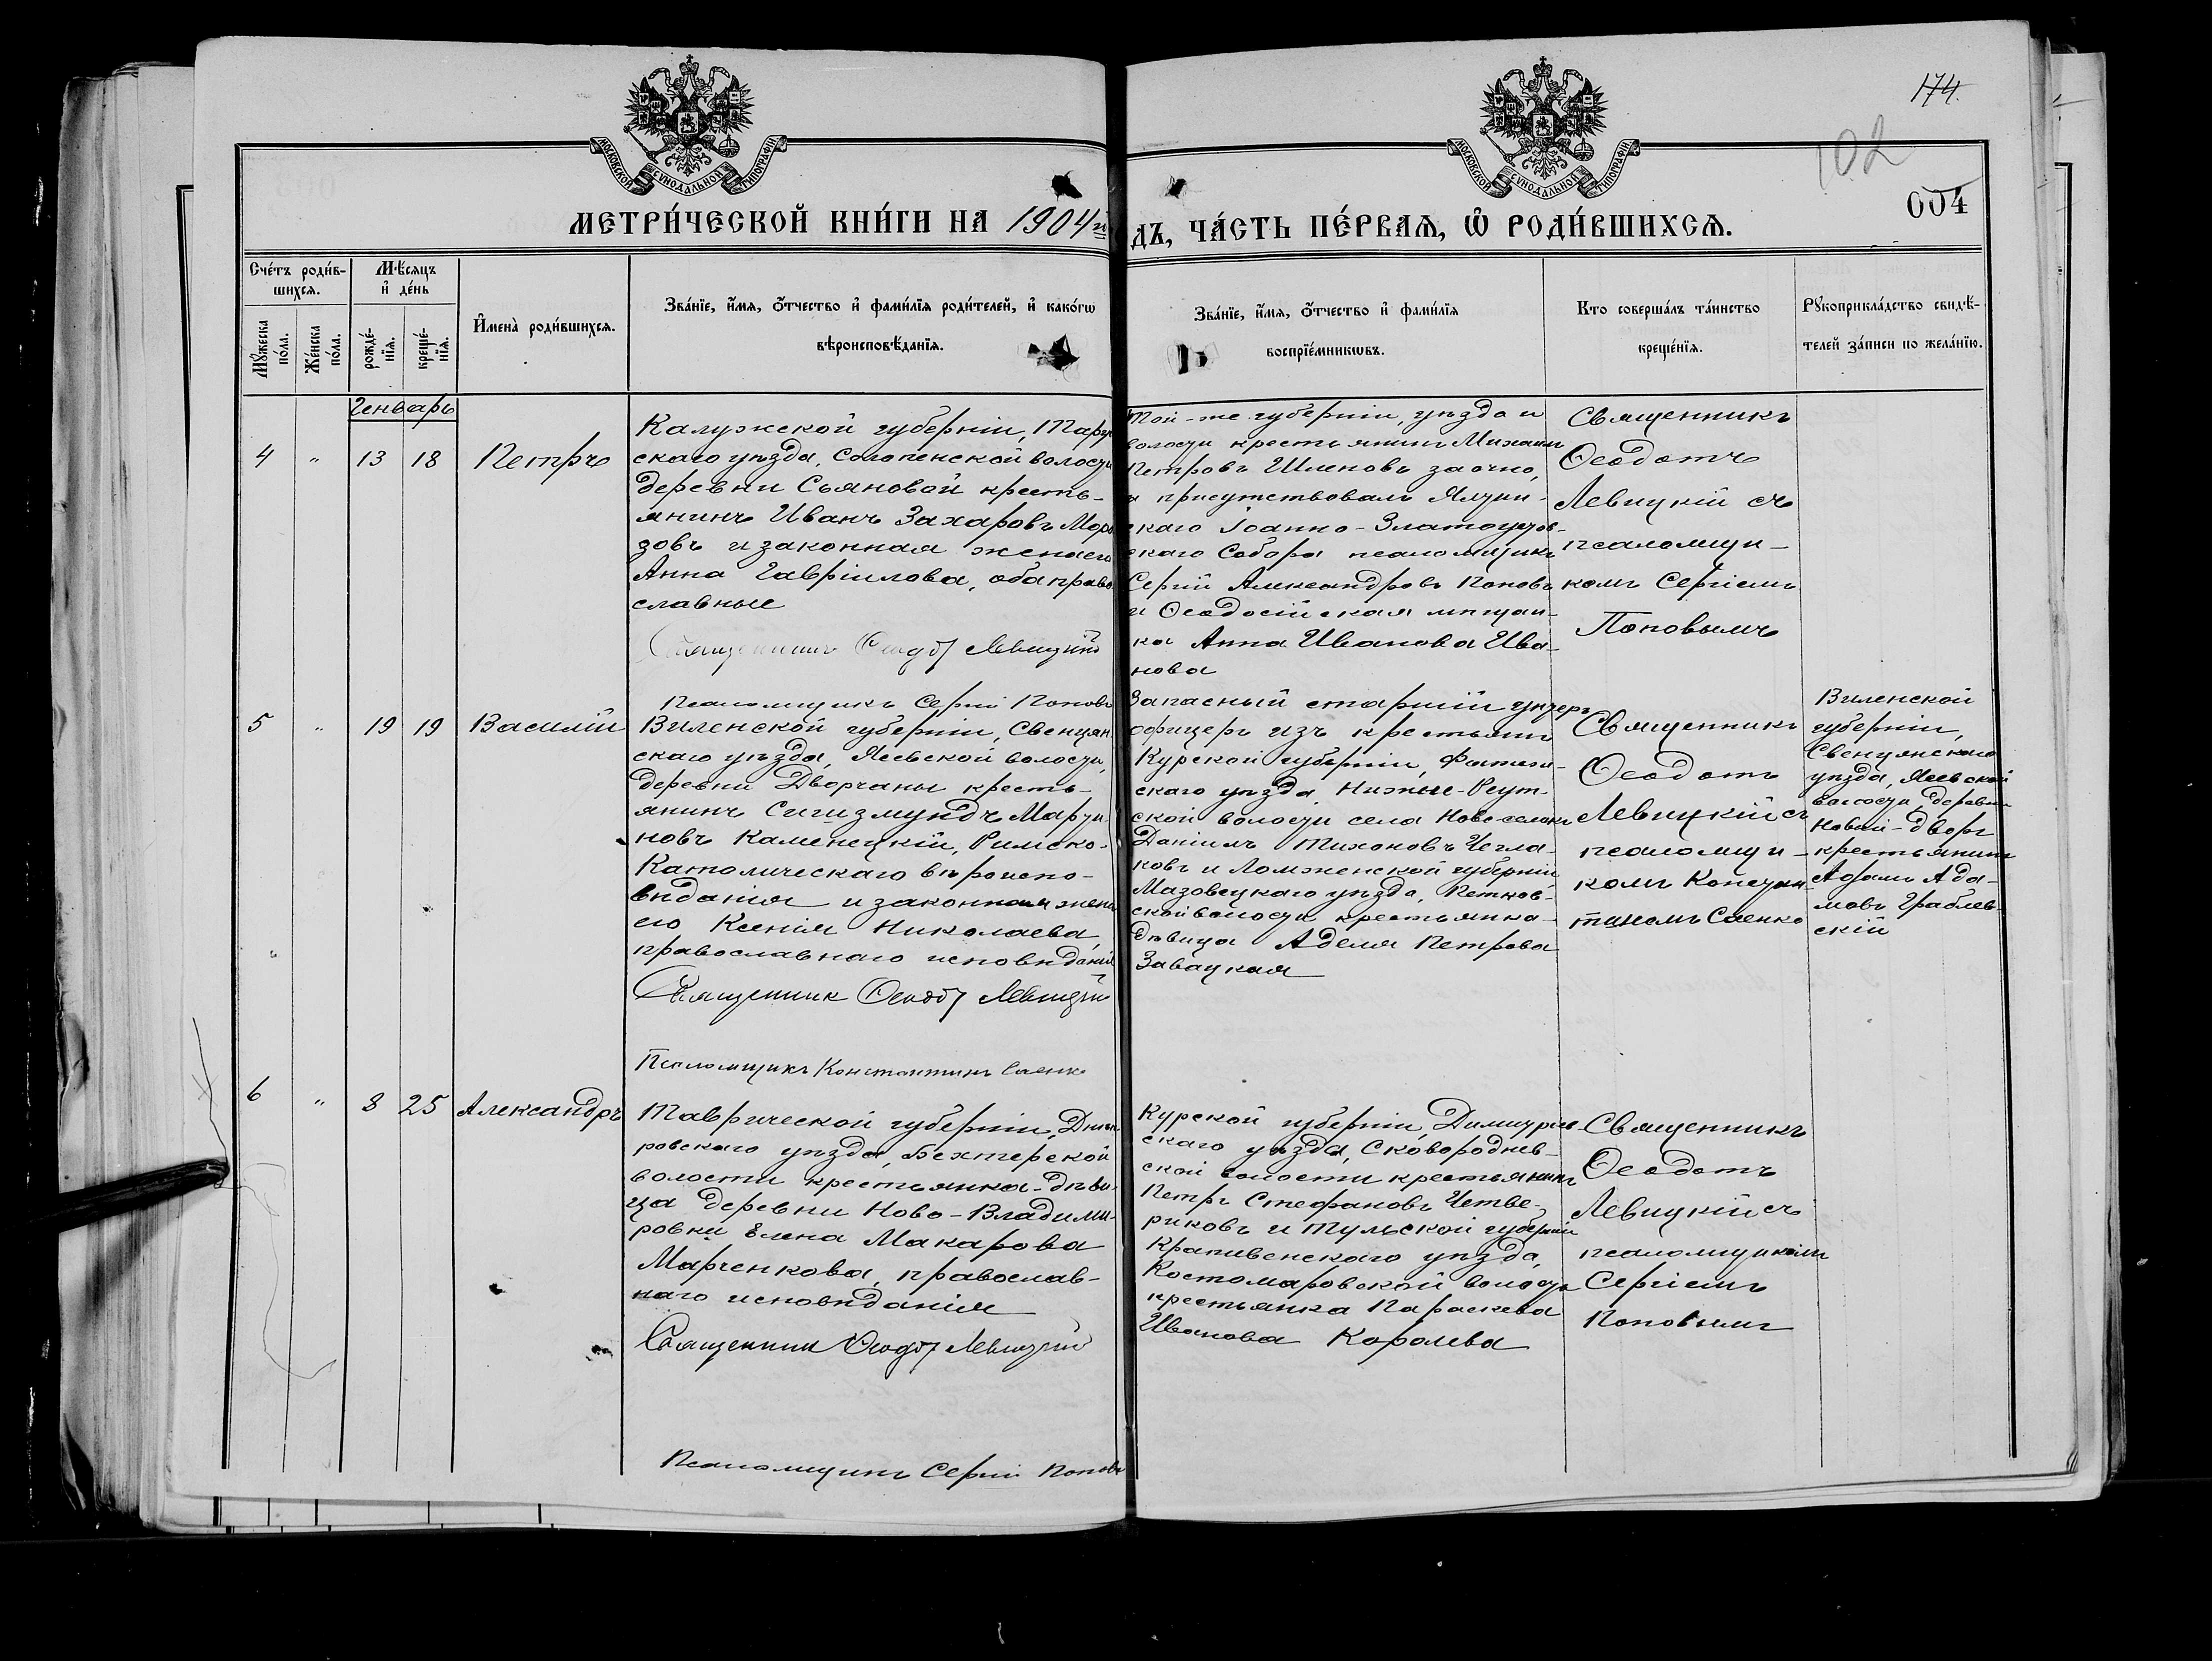 174.
102
004
МОСКОВСКОЙ СѴНОДАЛЬНОЙ ТИПОГРАФІИ
МОСКОВСКОЙ СѴНОДАЛЬНОЙ ТИПОГРАФІИ
МЕТРИ́ЧЕСКОЙ КНИ́ГИ НА 1904й
ДЪ, ЧА́СТЬ ПЕ́РВАѦ, Ѿ РОДИ́ВШИХСѦ.
Сче́тъ роди́в-
шихсѧ.
Мѣ́сѧцъ
и҆ де́нь
Мꙋ́жеска
по́ла.
Же́нска
по́ла.
рожде́-
нїѧ.
креще́-
нїѧ.
И҆мена̀ роди́вшихсѧ.
Зва́нїе, и҆́мѧ, ѻ҆́тчество и҆ фами́лїѧ роди́телей, и҆ како́гѡ
вѣроисповѣ́данїѧ.
Зва́нїе, и҆́мѧ, ѻ҆́тчество и҆ фами́лїѧ
воспрїе́мникѡвъ.
Кто соверша́лъ та́инство
креще́нїѧ.
Рꙋкоприкла́дство свидѣ́-
телей за́писи по жела́нїю.
Генварь
4 " 13 18 Петръ
Калужской губерніи, Тару
скаго уѣзда, Солопенской волости
деревни Сьяновой кресть-
янинъ Иванъ Захаровъ Моро
зовъ и законная жена его
Анна Гавріилова, оба право
славные
Священникъ Ѳеодотъ Левицкій
Псаломщикъ Сергій Поповъ
Той-же губерніи, уѣзда и
волости крестьянинъ Михаилъ
Петровъ Шленовъ заочно,
а присутствовалъ Ялтин-
скаго Іоанно-Златоустов-
скаго Собора псаломщикъ
Сергій Александровъ Поповъ
и Ѳеодосійская мѣщан-
ка Анна Иванова Ива-
нова
Священникъ
Ѳеодотъ
Левицкій съ
псаломщи-
комъ Сергіемъ
Поповымъ
5 " 19 19 Василій
Виленской губерніи, Свенцян
скаго уѣзда, Ясевской волости,
деревни Дворчаны кресть-
янинъ Сигизмундъ Марти-
новъ Каменецкій, Римско-
Католическаго вѣроиспо-
вѣданія и законная жена
его Ксенія Николаева
православнаго исповѣданія
Священник Ѳеодотъ Левицкій
Псаломщикъ Константинъ Саенко
Запасный старшій унтеръ
офицеръ изъ крестьянъ
Курской губерніи, Фатеж-
скаго уѣзда, Нижне-Реут-
ской волости села Ново-селокъ
Даніилъ Тихоновъ Чегла-
ковъ и Ломженской губерніи
Мазовецкаго уѣзда, Петков-
ской волости крестьянка-
дѣвица Аделя Петрова
Завацкая
Священникъ
Ѳеодотъ
Левицкій съ
псаломщи-
комъ Констан-
тиномъ Саенко
Виленской
губерніи,
Свенцянскаго
уѣзда, Ясевской
волости, деревни
Новый-дворъ
крестьянинъ
Адамъ Ада-
мовъ Граблев-
скій
6 " 8 25 Александръ
Таврической губерніи, Днѣп
ровскаго уѣзда, Бехтерской
волости крестьянка-дѣви-
ца деревни Ново-Владими-
ровки Елена Макарова
Марченкова, православ-
наго исповѣданія
Священник Ѳеодотъ Левицкій
Псаломщикъ Сергій Поповъ
Курской губерніи, Димитріев-
скаго уѣзда, Сковороднев-
ской волости крестьянинъ
Петръ Стефановъ Четве-
риковъ и Тульской губерніи
Крапивенскаго уѣзда,
Костомаровской волости
крестьянка Параскева
Иванова Королева
Священникъ
Ѳеодотъ
Левицкій съ
псаломщикомъ
Сергіемъ
Поповымъ